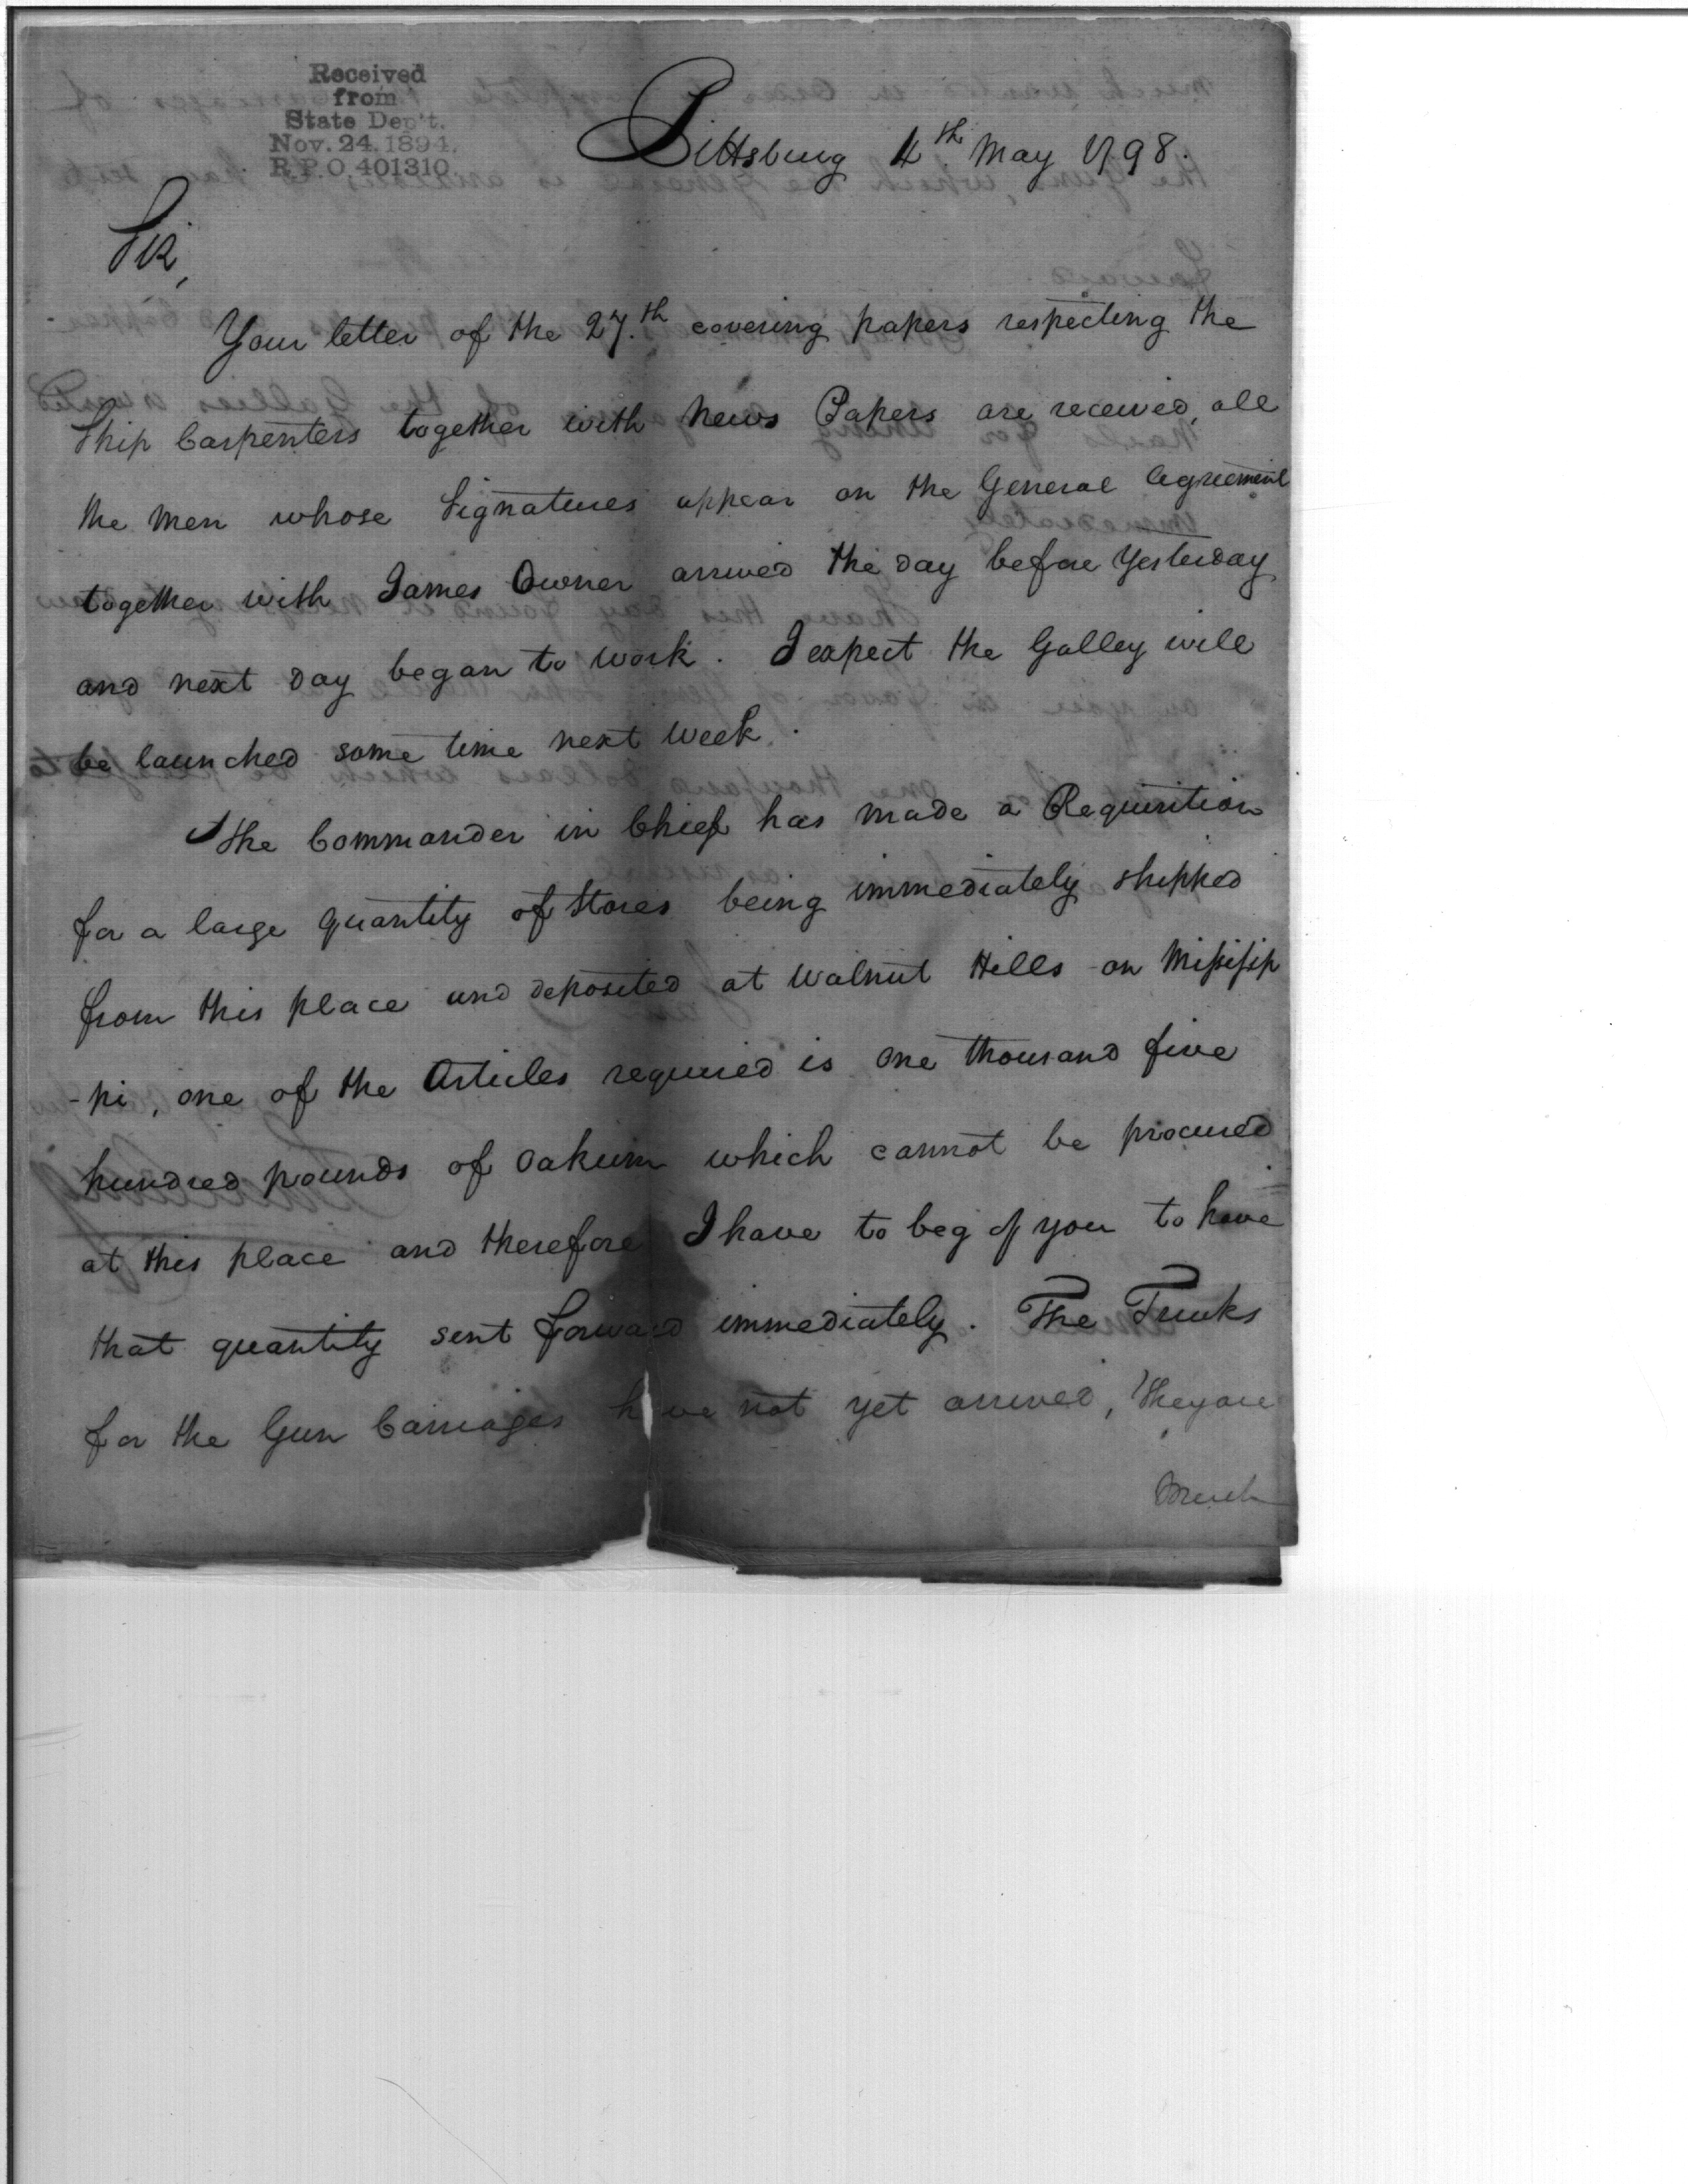 Received
from
State Dep't.
Nov. 24. 1894.
R.P.O. 401310
Pittsburg 4th May 1798.
Sir,
Your letter of the 27.th covering papers respecting the
Ship Carpenters together with News Papers are received, all
the Men whose Signatures appear on the General Agreement
together with James Owner arrived the day before Yesterday
and next day began to work. I expect the Galley will
be launched some time next week.
The Commander in Chief has made a Requisition
for a large quantity of Stores being immediately shipped
from this place and deposited at Walnut Hills on Missisip
-pi, one of the Articles required is one thousand five
hundred pounds of Oakum which cannot be procured
at this place and therefore I have to beg of you to have
that quantity sent forward immediately. The Trucks
for the Gun Carriages have not yet arrived, they are
Much